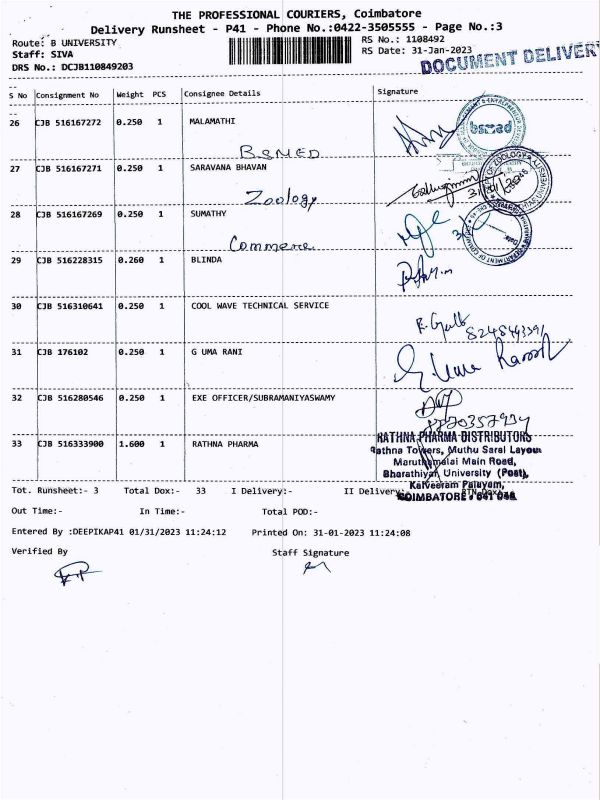 THE PROFESSIONAL COURIERS, Coimbatore
Delivery Runsheet - P41 - Phone No.:0422-3505555 - Page No.:3
Route: B UNIVERSITY
RS No.: 1108492
Staff: SIVA
RS Date: 31-Jan-2023
DRS No.: DCJB110849203
DOCUMENT DELIVER
S No Consignment No Weight PCS Consignee Details Signature
26 CJB 516167272 0.250 1 MALAMATHI
bsmed
BSMED
27 CJB 516167271 0.250 1 SARAVANA BHAVAN
Zoology
28 CJB 516167269 0.250 1 SUMATHY
Commerce
29 CJB 516228315 0.260 1 BLINDA
30 CJB 516310641 0.250 1 COOL WAVE TECHNICAL SERVICE
31 CJB 176102 0.250 1 G UMA RANI
32 CJB 516280546 0.250 1 EXE OFFICER/SUBRAMANIYASWAMY
33 CJB 516333900 1.600 1 RATHNA PHARMA
RATHNA PHARMA DISTRIBUTORS
Rathna Towers, Muthu Saral Layout
Maruthamalai Main Road,
Bharathiyar University (Post),
Kalveeram Palayam,
COIMBATORE - 641 046
Tot. Runsheet:- 3 Total Dox:- 33 I Delivery:- II Delivery:-
Out Time:- In Time:- Total POD:-
Entered By :DEEPIKAP41 01/31/2023 11:24:12 Printed On: 31-01-2023 11:24:08
Verified By Staff Signature